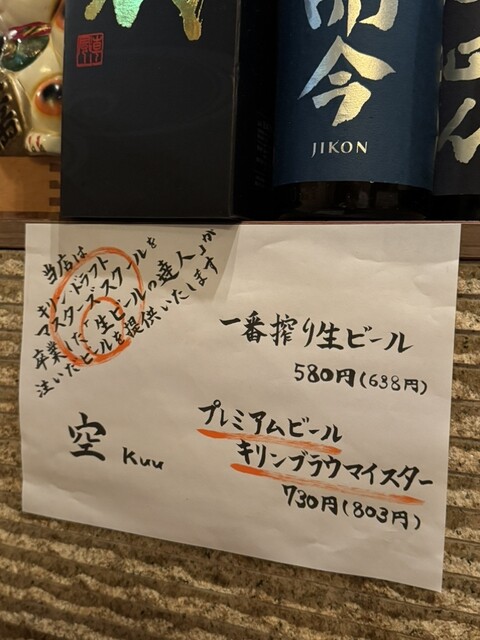 而今
JIKON
当店は
キリンドラフト
マスターズスクールを
卒業した「生ビールの達人」が
注いだビールを提供いたします
一番搾り生ビール
580円(638円)
プレミアムビール
キリンブラウマイスター
730円(803円)
空 Kuu